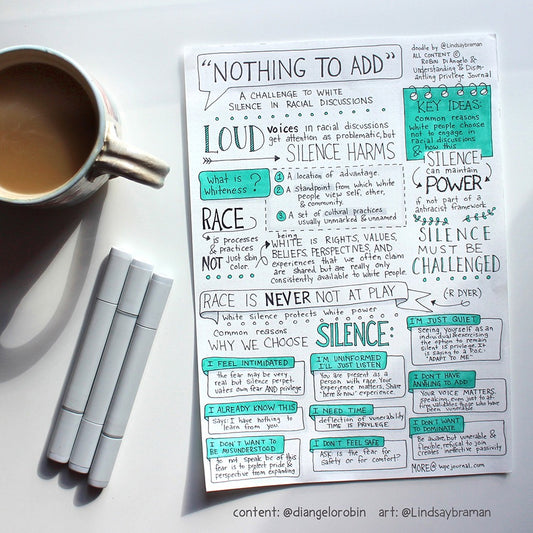 "NOTHING TO ADD"
A CHALLENGE TO WHITE
SILENCE IN RACIAL DISCUSSIONS
doodle by @Lindsaybraman
ALL CONTENT ©
ROBIN DIANGELO &
Understanding & Dism-
antling privilege Journal
LOUD voices in racial discussions
get attention as problematic, but
SILENCE HARMS
KEY IDEAS:
Common reasons
white people choose
not to engage in
racial discussions
& how this
SILENCE
can maintain
POWER
if not part of a
antiracist framework
SILENCE
MUST BE
CHALLENGED
What is
Whiteness?
1 A location of advantage.
2 A standpoint from which white
people view self, other,
& community.
3 A set of cultural practices
usually unmarked & unnamed
RACE
is processes
& practices
NOT just skin
color.
being
WHITE IS RIGHTS, VALUES,
BELIEFS, PERSPECTIVES, AND
experiences that we often claim
are shared but are really only
consistently available to white people.
RACE IS NEVER NOT AT PLAY
(-R DYER)
White silence protects white power
Common reasons
WHY WE CHOOSE SILENCE:
I'M JUST QUIET
Seeing yourself as an
individual & exercising
the option to remain
silent is privilege. It
is saying to a P.O.C.
"ADAPT TO ME"
I FEEL INTIMIDATED
the fear may be very
real but silence perpet-
uates own fear AND privilege
I'M UNINFORMED
I'LL JUST LISTEN
You are present as a
person with race. Your
experience matters. Share
"here & now" experience.
I DON'T HAVE
ANYTHING TO ADD
YOUR VOICE MATTERS.
I ALREADY KNOW THIS
Says: I have nothing to
learn from you.
I NEED TIME
deflection of vulnerability
TIME IS PRIVILEGE
I DON'T WANT
TO DOMINATE
Be aware, but vulnerable &
flexible, refusal to join
creates ineffective passivity
I DON'T WANT TO
BE MISUNDERSTOOD
to not speak bc of this
fear is to protect pride &
perspective from expanding
I DON'T FEEL SAFE
ASK is the fear for
safety or for comfort?
MORE @ wpcjournal.com
content: @diangelorobin art: @Lindsaybraman